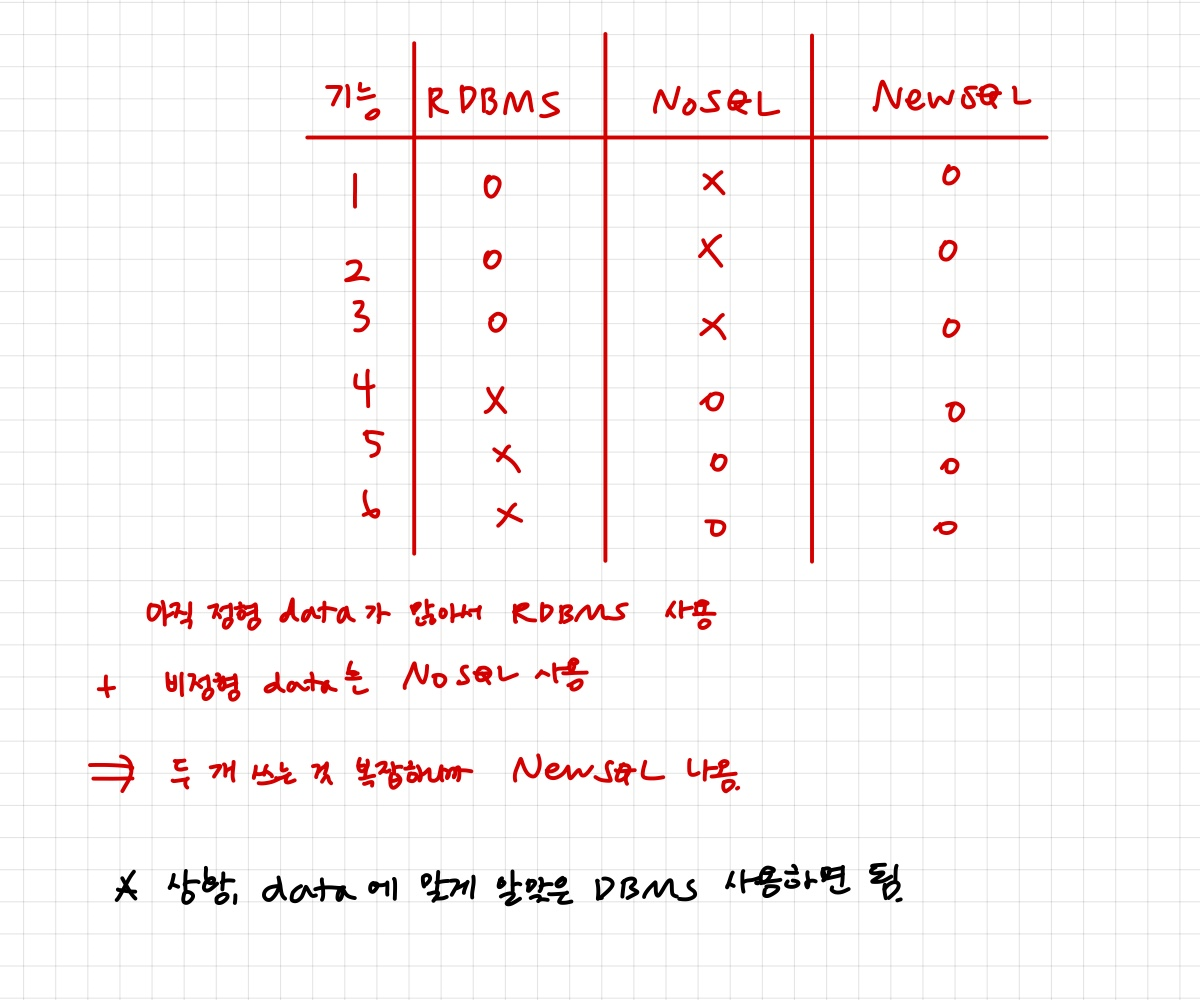 기능 RDBMS NoSQL NewSQL
1 O X O
2 O X O
3 O X O
4 X O O
5 X O O
6 X O O
아직 정형 data가 많아서 RDBMS 사용
+ 비정형 data는 NoSQL 사용
⇒ 두 개 쓰는 것 복잡하니까 NewSQL 나옴.
* 상황, data에 맞게 알맞은 DBMS 사용하면 됨.